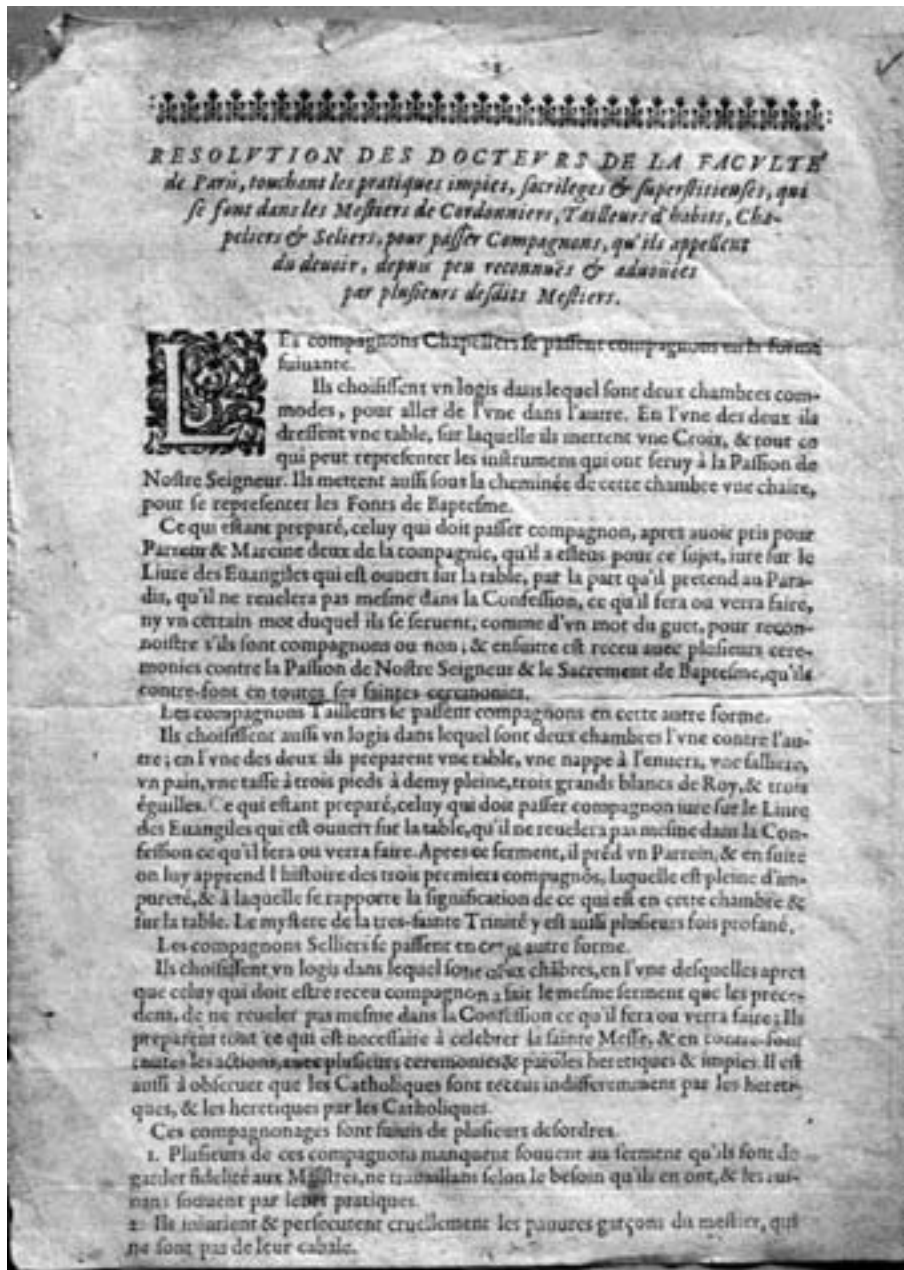 RESOLVTION DES DOCTEVRS DE LA FACVLTE'
de Paris, touchant les pratiques impies, sacrileges & superstitieuses, qui
se font dans les Mestiers de Cordonniers, Tailleurs d'habits, Cha-
peliers & Seliers, pour passer Compagnons, qu'ils appellent
du deuoir, depuis peu reconnuës & aduoüées
par plusieurs desdits Mestiers.
LEs compagnons Chapelliers se passent compagnons en la forme
suiuante.
Ils choisissent vn logis dans lequel sont deux chambres com-
modes, pour aller de l'vne dans l'autre. En l'vne des deux ils
dressent vne table, sur laquelle ils mettent vne Croix, & tout ce
qui peut representer les instrumens qui ont seruy à la Passion de
Nostre Seigneur. Ils mettent aussi sous la cheminée de cette chambre vne chaire,
pour se representer les Fonts de Baptesme.
Ce qui estant preparé, celuy qui doit passer compagnon, apres auoir pris pour
Parrein & Mareine deux de la compagnie, qu'il a esleus pour ce sujet, iure sur le
Liure des Euangiles qui est ouuert sur la table, par la part qu'il pretend au Para-
dis, qu'il ne reuelera pas mesme dans la Confession, ce qu'il fera ou verra faire,
ny vn certain mot duquel ils se seruent, comme d'vn mot du guet, pour recon-
noistre s'ils sont compagnons ou non; & ensuite est receu auec plusieurs cere-
monies contre la Passion de Nostre Seigneur & le Sacrement de Baptesme, qu'ils
contre-font en toutes ses saintes ceremonies.
Les compagnons Tailleurs se passent compagnons en cette autre forme.
Ils choisissent aussi vn logis dans lequel sont deux chambres l'vne contre l'au-
tre; en l'vne des deux ils preparent vne table, vne nappe à l'enuers, vne salliere,
vn pain, vne tasse à trois pieds à demy pleine, trois grands blancs de Roy, & trois
éguilles. Ce qui estant preparé, celuy qui doit passer compagnon iure sur le Liure
des Euangiles qui est ouuert sur la table, qu'il ne reuelera pas mesme dans la Con-
fession ce qu'il fera ou verra faire. Apres ce serment, il prẽd vn Parrein, & en suite
on luy apprend l'histoire des trois premiers compagnõs, laquelle est pleine d'im-
pureté, & à laquelle se rapporte la signification de ce qui est en cette chambre &
sur la table. Le mystere de la tres-sainte Trinité y est aussi plusieurs fois profané.
Les compagnons Selliers se passent en cette autre forme.
Ils choisissent vn logis dans lequel sont deux chãbres, en l'vne desquelles apres
que celuy qui doit estre receu compagnon a fait le mesme serment que les prece-
dens, de ne reueler pas mesme dans la Confession ce qu'il fera ou verra faire; Ils
preparent tout ce qui est necessaire à celebrer la sainte Messe, & en contre-font
toutes les actions, auec plusieurs ceremonies & paroles heretiques & impies. Il est
aussi à obseruer que les Catholiques sont receus indifferemment par les hereti-
ques, & les heretiques par les Catholiques.
Ces compagnonages sont suiuis de plusieurs desordres.
1. Plusieurs de ces compagnons manquent souuent au serment qu'ils font de
garder fidelité aux Maistres, ne trauaillans selon le besoin qu'ils en ont, & les rui-
nans souuent par leurs pratiques.
2. Ils iniurient & persecutent cruellement les pauures garçons du mestier, qui
ne sont pas de leur cabale.